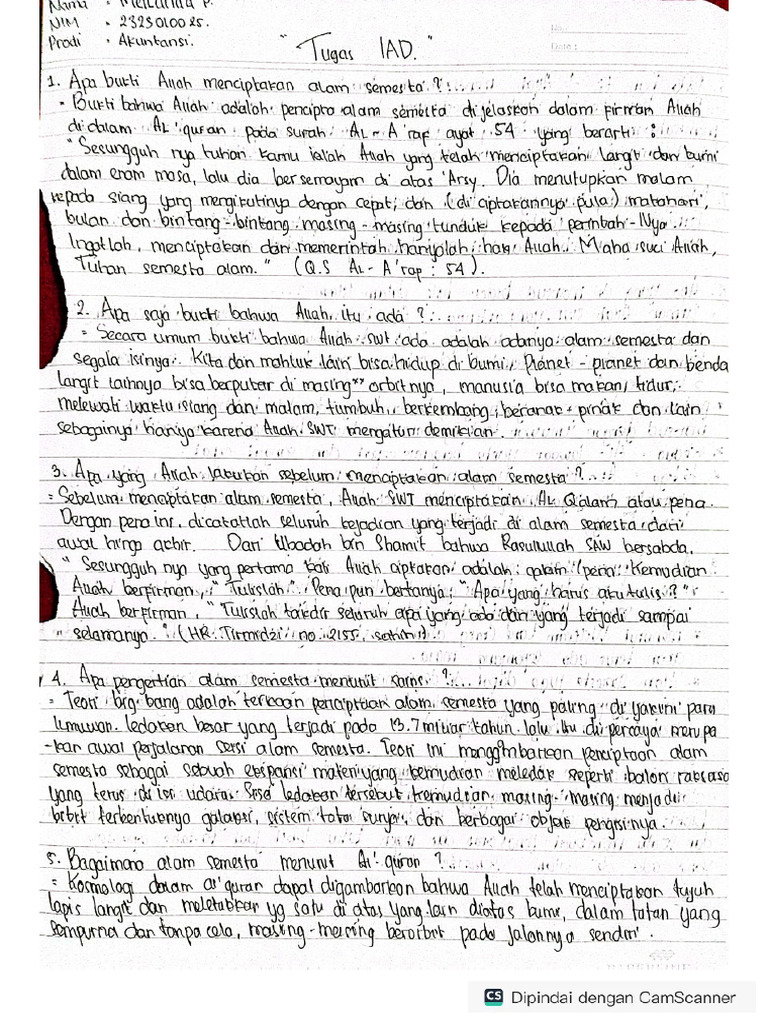 Nama : Meilanda P.
NIM : 2323010025.
Prodi : Akuntansi.
No.
Date :
"Tugas IAD."
1. Apa bukti Allah menciptakan alam semesta ?
- Bukti bahwa Allah adalah pencipta alam semesta dijelaskan dalam firman Allah
didalam AL'quran pada surah AL-A'rap ayat 54 yang berarti :
"Sesungguh nya tuhan kamu ialah Allah yang telah menciptakan langit dan bumi
dalam enam masa, lalu dia bersemayam di atas 'Arsy. Dia menutupkan malam
kepada siang yang mengikutinya dengan cepat, dan (di ciptakannya pula) matahari,
bulan dan bintang-bintang masing-masing tunduk kepada perintah-Nya
Ingatlah, menciptakan dan memerintah hanyalah hak Allah. Maha suci Allah,
Tuhan semesta alam." (Q.S AL-A'rap : 54).
2. Apa saja bukti bahwa Allah itu ada ?
= Secara umum bukti bahwa Allah swt ada adalah adanya alam semesta dan
segala isinya. Kita dan mahluk lain bisa hidup di bumi, Planet-planet dan benda
langit lainnya bisa berputar di masing" orbitnya, manusia bisa makan, tidur,
melewati waktu siang dan malam, tumbuh, berkembang, beranak pinak dan lain
sebagainya hanya karena Allah SWT mengatur demikian.
3. Apa yang Allah lakukan sebelum menciptakan alam semesta ?
= Sebelum menciptakan alam semesta, Allah SWT menciptakan AL Qalam atau pena.
Dengan pena ini, dicatatlah seluruh kejadian yang terjadi di alam semesta dari
awal hinga akhir. Dari Ubadah bin Shamit bahwa Rasulullah SAW bersabda,
"Sesungguh nya yang pertama kali Allah ciptakan adalah qalam (pena). Kemudian
Allah berfirman, "Tulislah". Pena pun bertanya, "Apa yang harus aku tulis?"
Allah berfirman, "Tulislah takdir seluruh apa yang ada dan yang terjadi sampai
selamanya." (HR. Tirmidzi no. 2155, sahih)
4. Apa pengertian alam semesta menurut sains ?
= Teori big bang adalah terkaan penciptaan alam semesta yang paling di yakini para
ilmuwan. ledakan besar yang terjadi pada 13.7 miliar tahun lalu itu dipercaya merupa
-kan awal perjalanan sensi alam semesta. Teori ini menggambarkan penciptaan alam
semesta sebagai sebuah ekspansi materi yang kemudian meledak seperti balon raksasa
yang terus di isi udara. Sisa ledakan tersebut kemudian masing-masing menjadi
bibit terbentuknya galaksi, sistem tata surya, dan berbagai objek pengisinya.
5. Bagaimana alam semesta menurut Al'quran ?
= Kosmologi dalam al'quran dapat digambarkan bahwa Allah telah menciptakan tujuh
lapis langit dan meletakkan yg satu di atas yang lain diatas bumi, dalam tatan yang
sempurna dan tanpa cela, masing-masing berorbit pada jalannya sendiri.
CS Dipindai dengan CamScanner